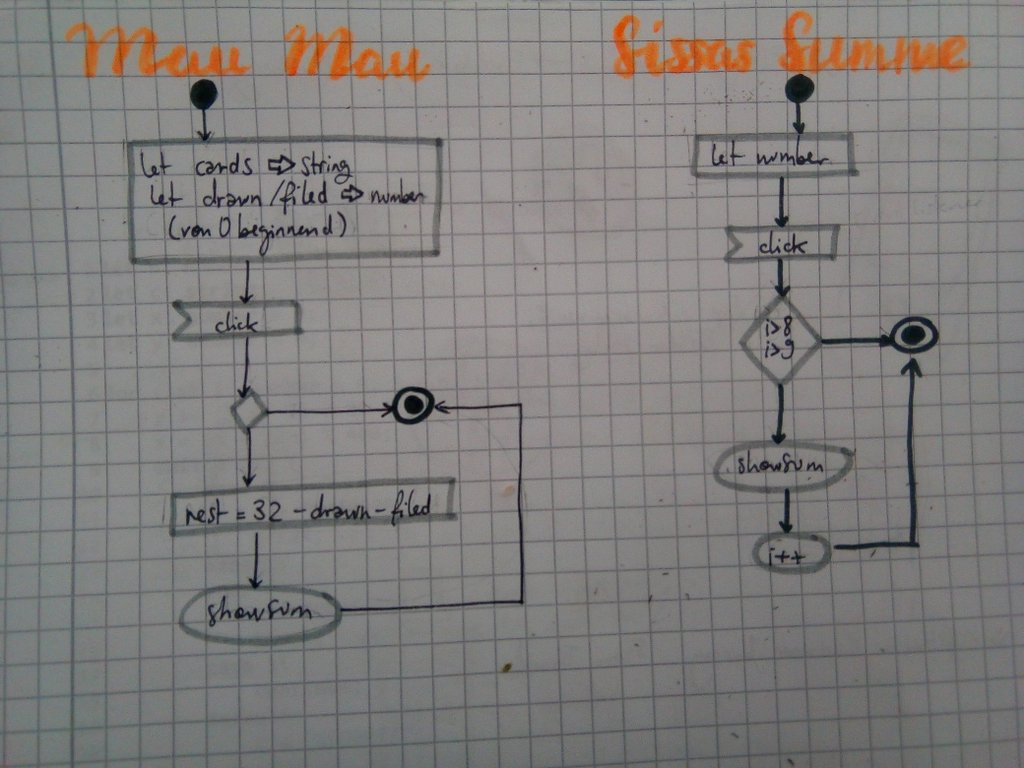 Mau Mau
let cards ⇨ string
let drawn/filed ⇨ number
(von 0 beginnend)
click
rest = 32 - drawn - filed
showSum
Sissas Summe
let number
click
i>8
i>9
showSum
i++